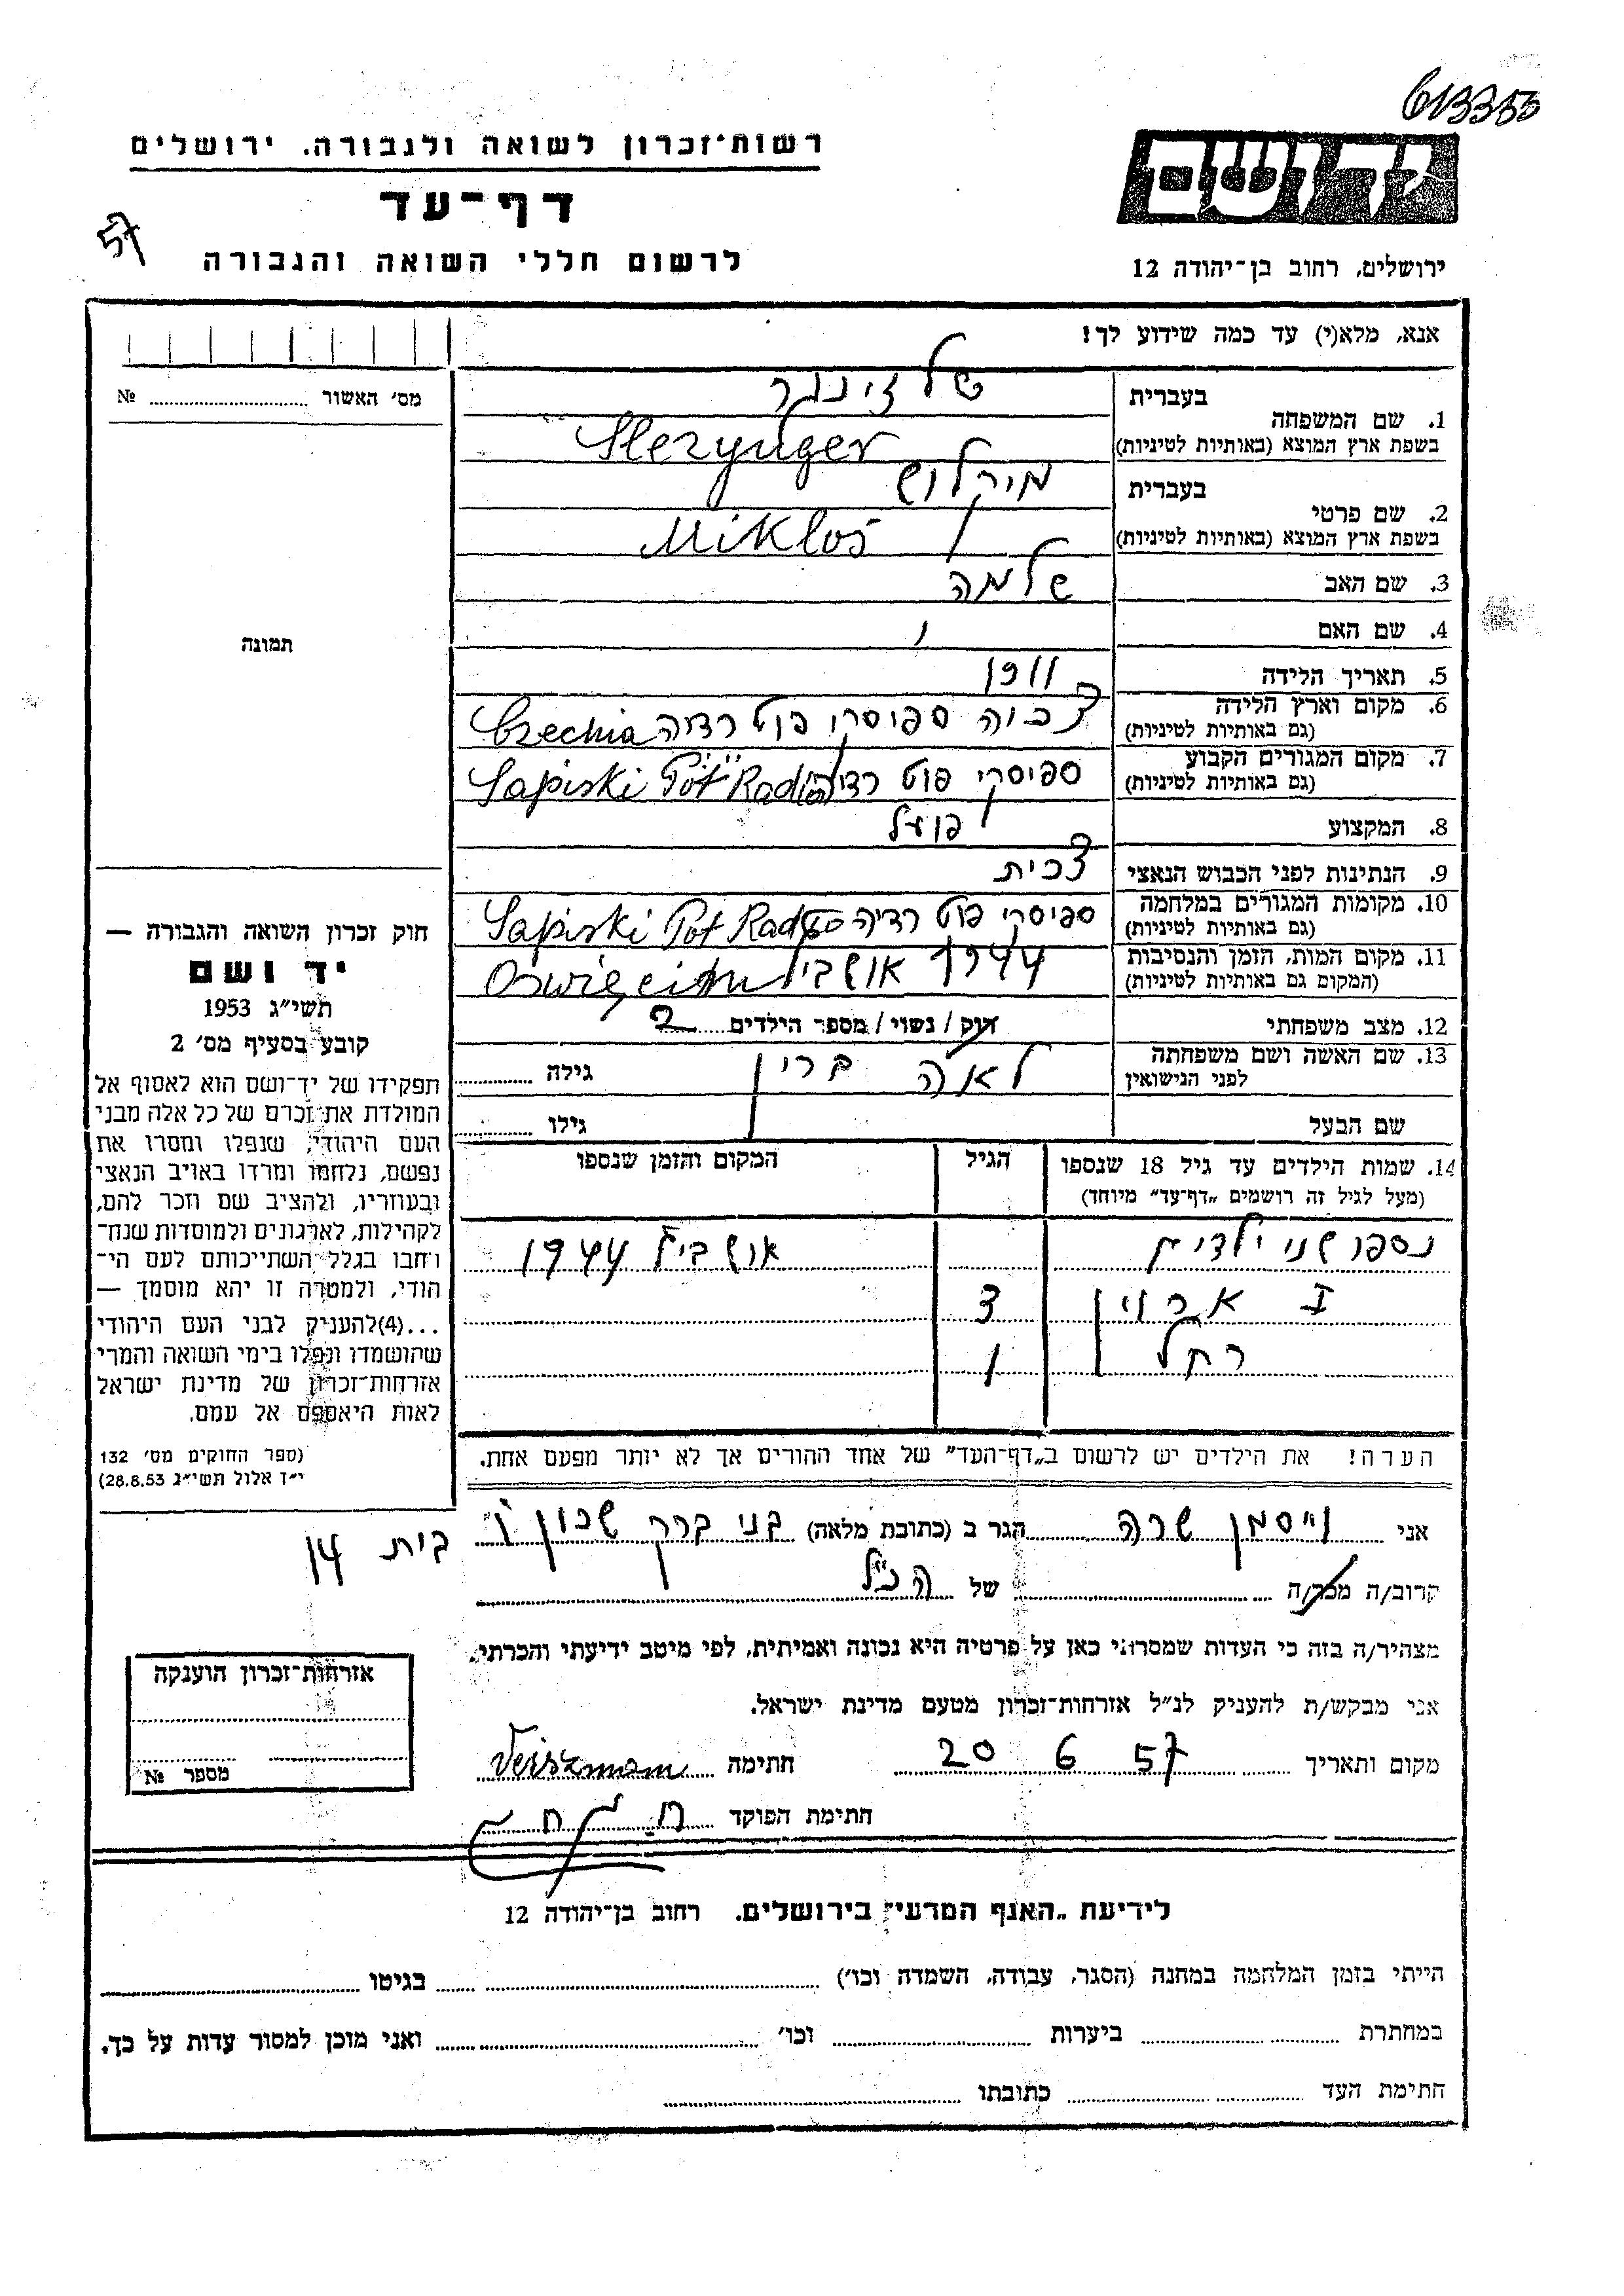 613353
רשות־זכרון לשואה ולגבורה. ירושלים
דף־עד
לרשום חללי השואה והגבורה
57
יד ושם
ירושלים, רחוב בן־יהודה 12
אנא, מלא(י) עד כמה שידוע לך!
מס׳ האשור № 
תמונה
1. שם המשפחה בעברית שלזינגר
בשפת ארץ המוצא (באותיות לטיניות) Slezynger
2. שם פרטי בעברית מיקלוש
בשפת ארץ המוצא (באותיות לטיניות) Mikloś
3. שם האב שלמה
4. שם האם
5. תאריך הלידה 1911
6. מקום וארץ הלידה (גם באותיות לטיניות) צכיה ספיסקי פוט רדיה Czechia
7. מקום המגורים הקבוע (גם באותיות לטיניות) ספיסקי פוט רדיה Sapiski Pöt
8. המקצוע פועל
9. הנתינות לפני הכבוש הנאצי צכית
10. מקומות המגורים במלחמה (גם באותיות לטיניות) ספיסקי פוט רדיה Sapiski Pot
11. מקום המות, הזמן והנסיבות (המקום גם באותיות לטיניות) 1944 אושביץ
12. מצב משפחתי רוק / נשוי / מספר הילדים 2
13. שם האשה ושם משפחתה לפני הנישואין לאה ברין גילה
שם הבעל גילו
14. שמות הילדים עד גיל 18 שנספו הגיל המקום והזמן שנספו
(מעל לגיל זה רושמים „דף־עד” מיוחד)
נספו שני ילדים אושביץ 1944
I ארוין 3
רחל 1
הערה! את הילדים יש לרשום ב„דף־העד” של אחד ההורים אך לא יותר מפעם אחת.
חוק זכרון השואה והגבורה —
יד ושם
תשי״ג 1953
קובע בסעיף מס׳ 2
תפקידו של יד־ושם הוא לאסוף אל
המולדת את זכרם של כל אלה מבני
העם היהודי, שנפלו ומסרו את
נפשם, נלחמו ומרדו באויב הנאצי
ובעוזריו, ולהציב שם וזכר להם,
לקהילות, לארגונים ולמוסדות שנח־
רחבו בגלל השתייכותם לעם הי־
הודי, ולמטרה זו יהא מוסמך —
...(4)להעניק לבני העם היהודי
שהושמדו ונפלו בימי השואה והמרי
אזרחות־זכרון של מדינת ישראל
לאות היאספם אל עמם.
(ספר החוקים מס׳ 132
י״ז אלול תשי״ג 28.8.53)
אני וייסמן שרה הגר ב (כתובת מלאה) בני ברק שכון ו׳ בית 14
קרוב/ה מכר/ה של הנ״ל
מצהיר/ה בזה כי העדות שמסרתי כאן על פרטיה היא נכונה ואמיתית, לפי מיטב ידיעתי והכרתי.
אני מבקש/ת להעניק לנ״ל אזרחות־זכרון מטעם מדינת ישראל.
מקום ותאריך 20 6 57 חתימה Veiszmann
חתימת הפוקד
אזרחות־זכרון הוענקה
מספר №
לידיעת „האגף המדעי” בירושלים. רחוב בן־יהודה 12
הייתי בזמן המלחמה במחנה (הסגר, עבודה, השמדה וכו׳) בגיטו
במחתרת ביערות וכו׳ ואני מוכן למסור עדות על כך.
חתימת העד כתובתו